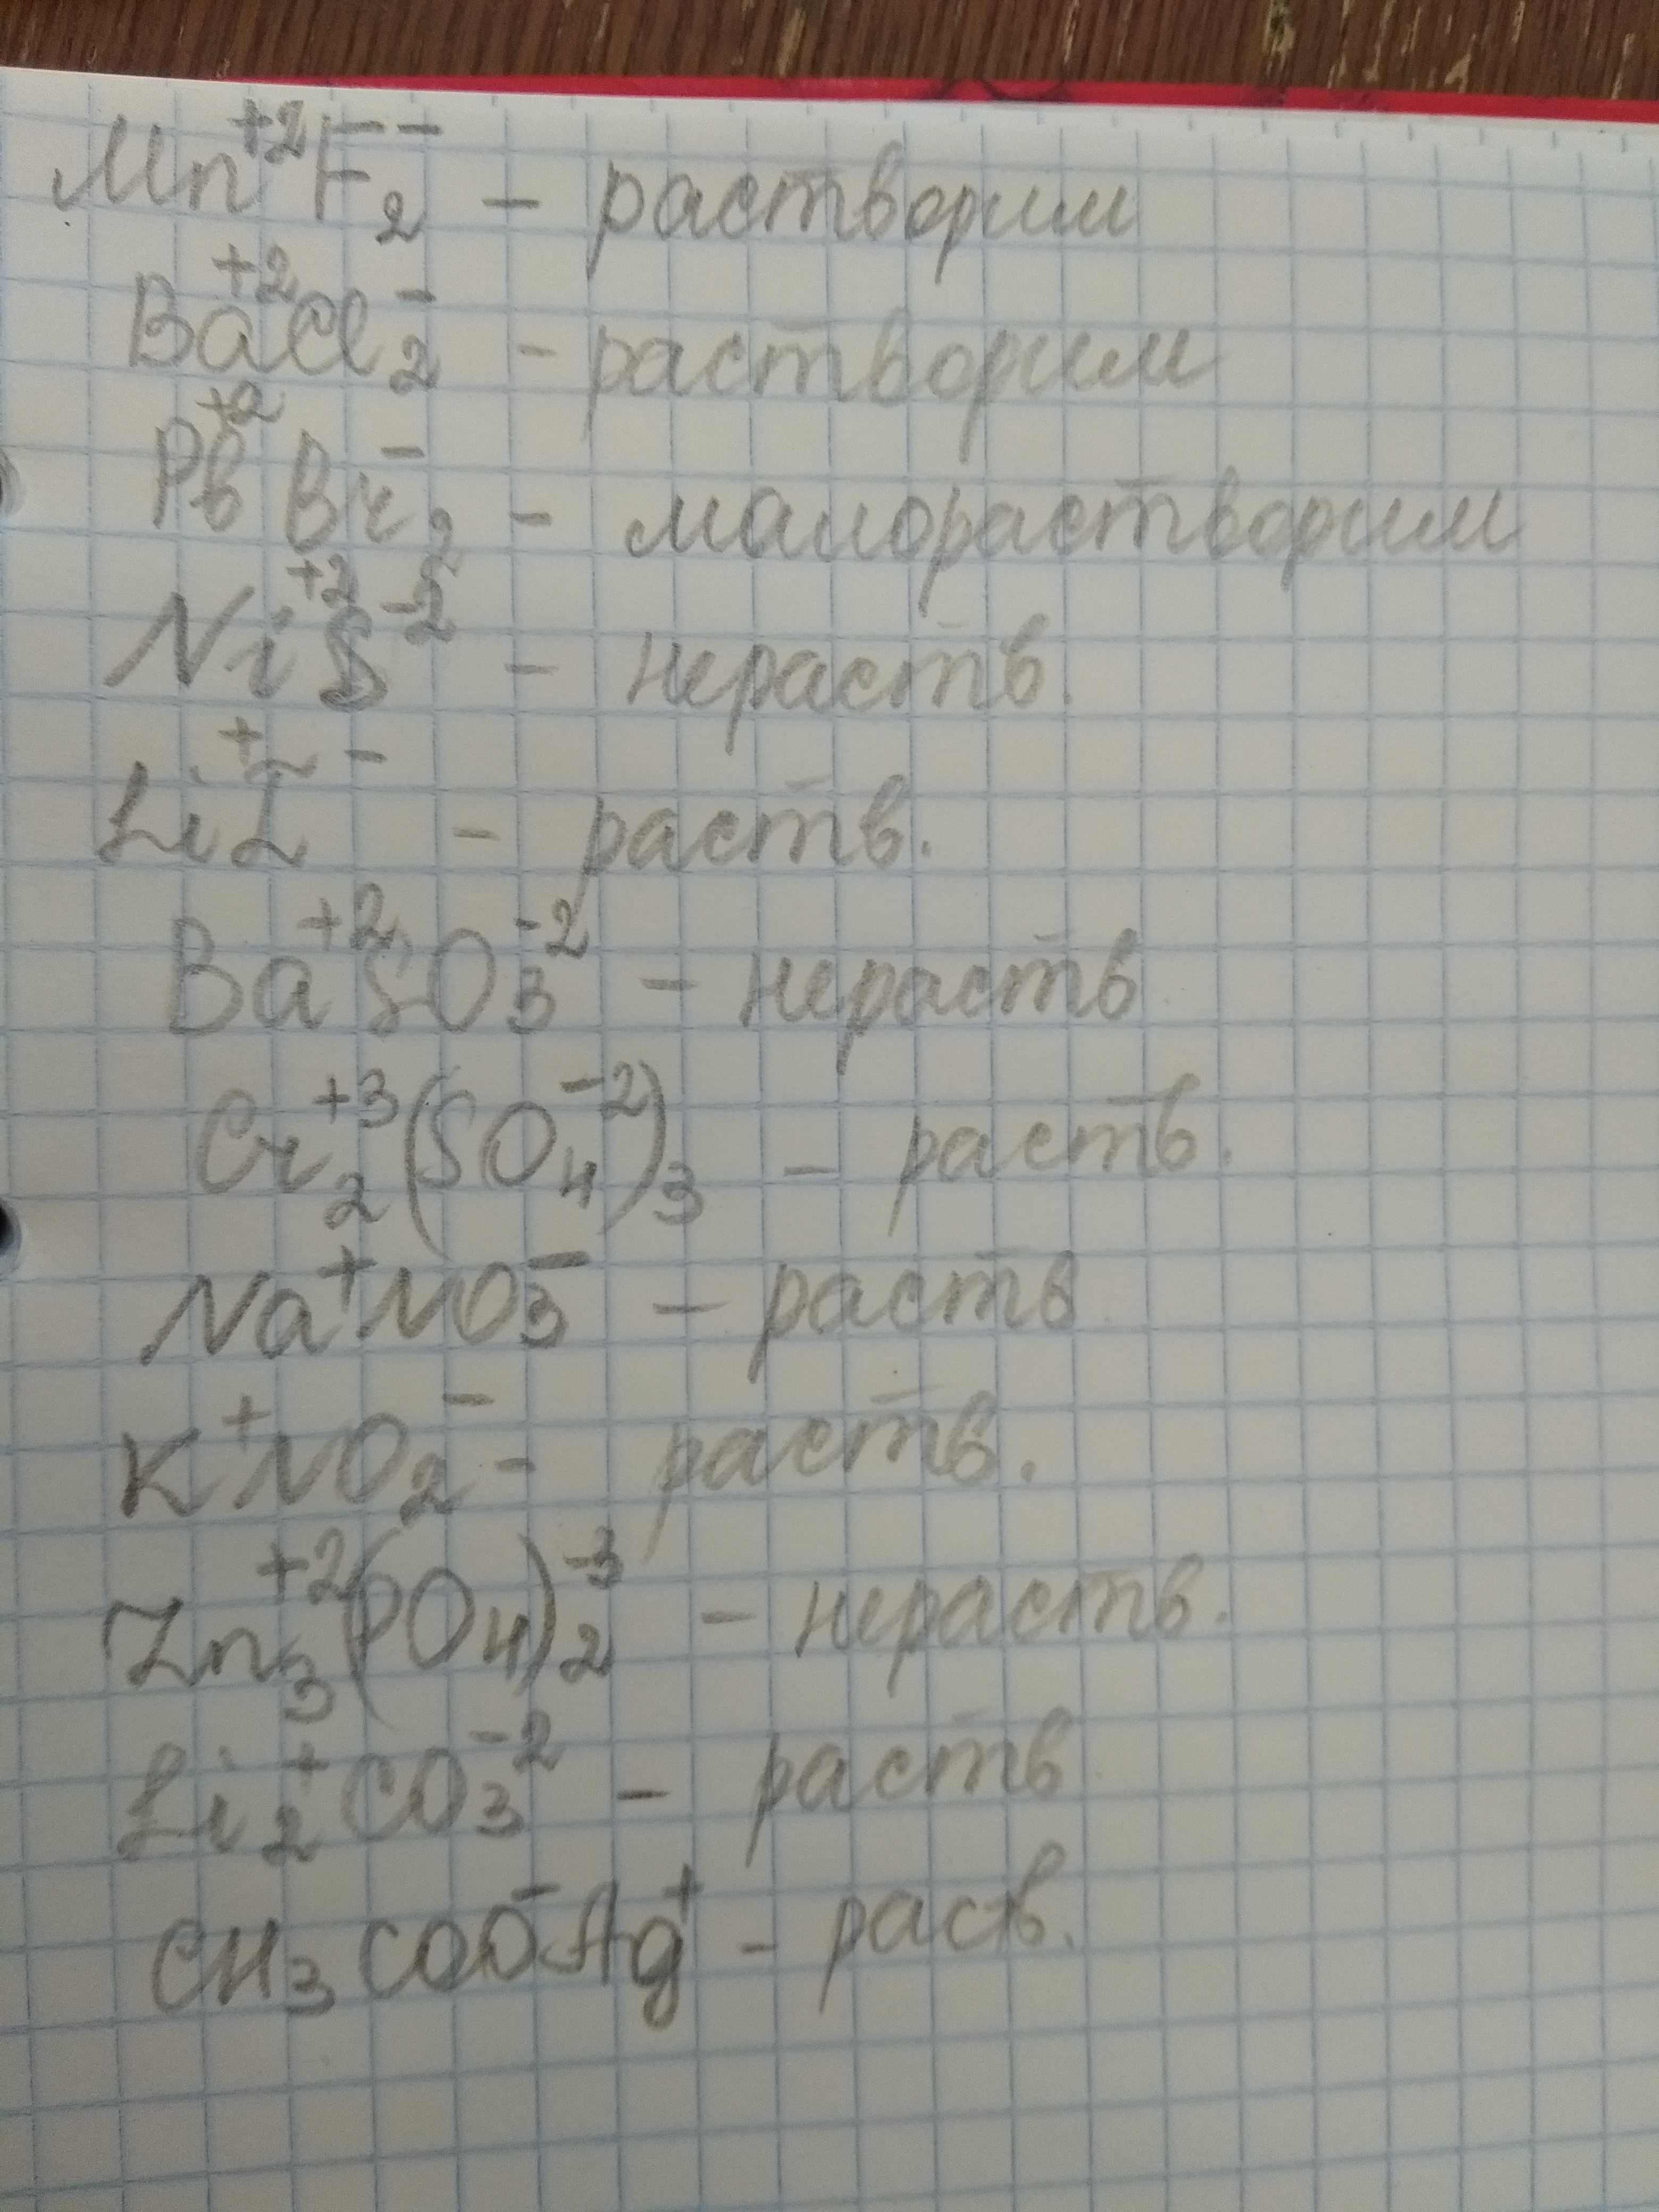 Mn⁺²F₂⁻ - растворим
Ba⁺²Cl₂⁻ - растворим
Pb⁺²Br₂⁻ - малорастворим
Ni⁺²S⁻² - нераств.
Li⁺I⁻ - раств.
Ba⁺²SO₃⁻² - нераств
Cr₂⁺³(SO₄⁻²)₃ - раств.
Na⁺NO₃⁻ - раств
K⁺NO₂⁻ - раств.
Zn₃⁺²(PO₄)₂⁻³ - нераств.
Li₂⁺CO₃⁻² - раств
CH₃COO⁻Ag⁺ - расв.